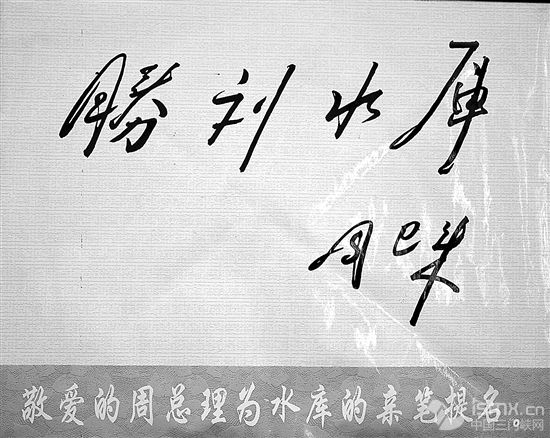 勝利水庫
周恩来
敬爱的周总理为水库的亲笔提名
9
中国三门峡网